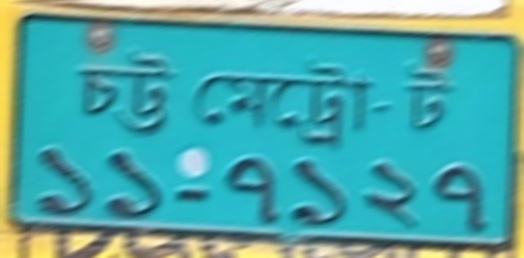 চট্ট মেট্রো-ট
১১-৭১২৭